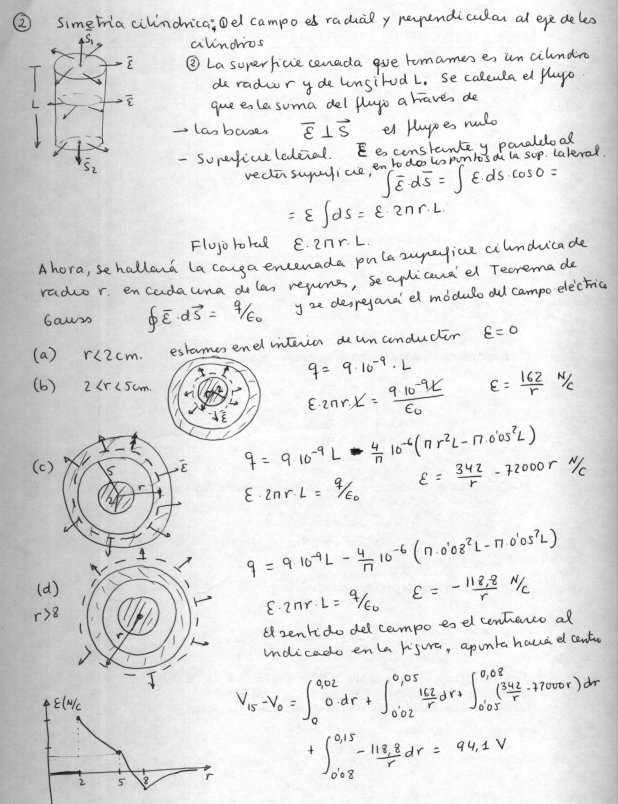 ② Simetría cilíndrica: ① el campo es radial y perpendicular al eje de los
cilindros
② La superficie cerrada que tomamos es un cilindro
de radio r y de longitud L. Se calcula el flujo
que es la suma del flujo a través de
→ las bases ε̄ ⊥ S⃗ el flujo es nulo
- Superficie lateral. ε̄ es constante y paralelo al
vector superficie, en todos los puntos de la sup. lateral.
∫ ε̄·dS̄ = ∫ ε·dS·cos0 =
= ε ∫ dS = ε·2πr·L.
Flujo total ε·2πr·L.
S̄₁
ε̄
L
ε̄
S̄₂
Ahora, se hallará la carga encerrada por la superficie cilíndrica de
radio r. en cada una de las regiones, se aplicará el Teorema de
Gauss ∮ ε̄·dS⃗ = q/ε₀ y se despejará el módulo del campo eléctrico
(a) r<2cm. estamos en el interior de un conductor ε=0
(b) 2<r<5cm. q = 9·10⁻⁹·L
ε·2πr·L = 9·10⁻⁹L/ε₀ ε = 162/r N/C
(c) q = 9·10⁻⁹L - 4/π 10⁻⁶(πr²L-π·0'05²L)
ε·2πr·L = q/ε₀ ε = 342/r - 72000r N/C
5
r
2
ε̄
(d) q = 9·10⁻⁹L - 4/π 10⁻⁶(π·0'08²L-π·0'05²L)
r>8 ε·2πr·L = q/ε₀ ε = -118,8/r N/C
r
El sentido del campo es el contrario al
indicado en la figura, apunta hacia el centro
V₁₅-V₀ = ∫₀^0,02 0·dr + ∫_0'02^0,05 162/r dr + ∫_0'05^0,08 (342/r - 72000r)dr
+ ∫_0'08^0,15 -118,8/r dr = 94,1 V
ε(N/C
2 5 8 r